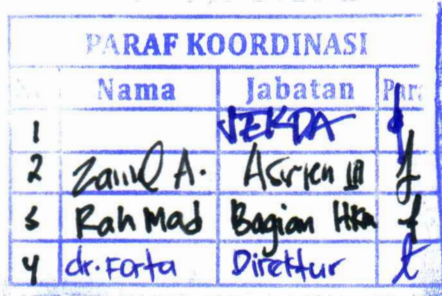 PARAF KOORDINASI
No. Nama Jabatan Par
1 SEKDA
2 Zainl A. Asisten III
3 Rahmad Bagian Hkm
4 dr. Forta Direktur